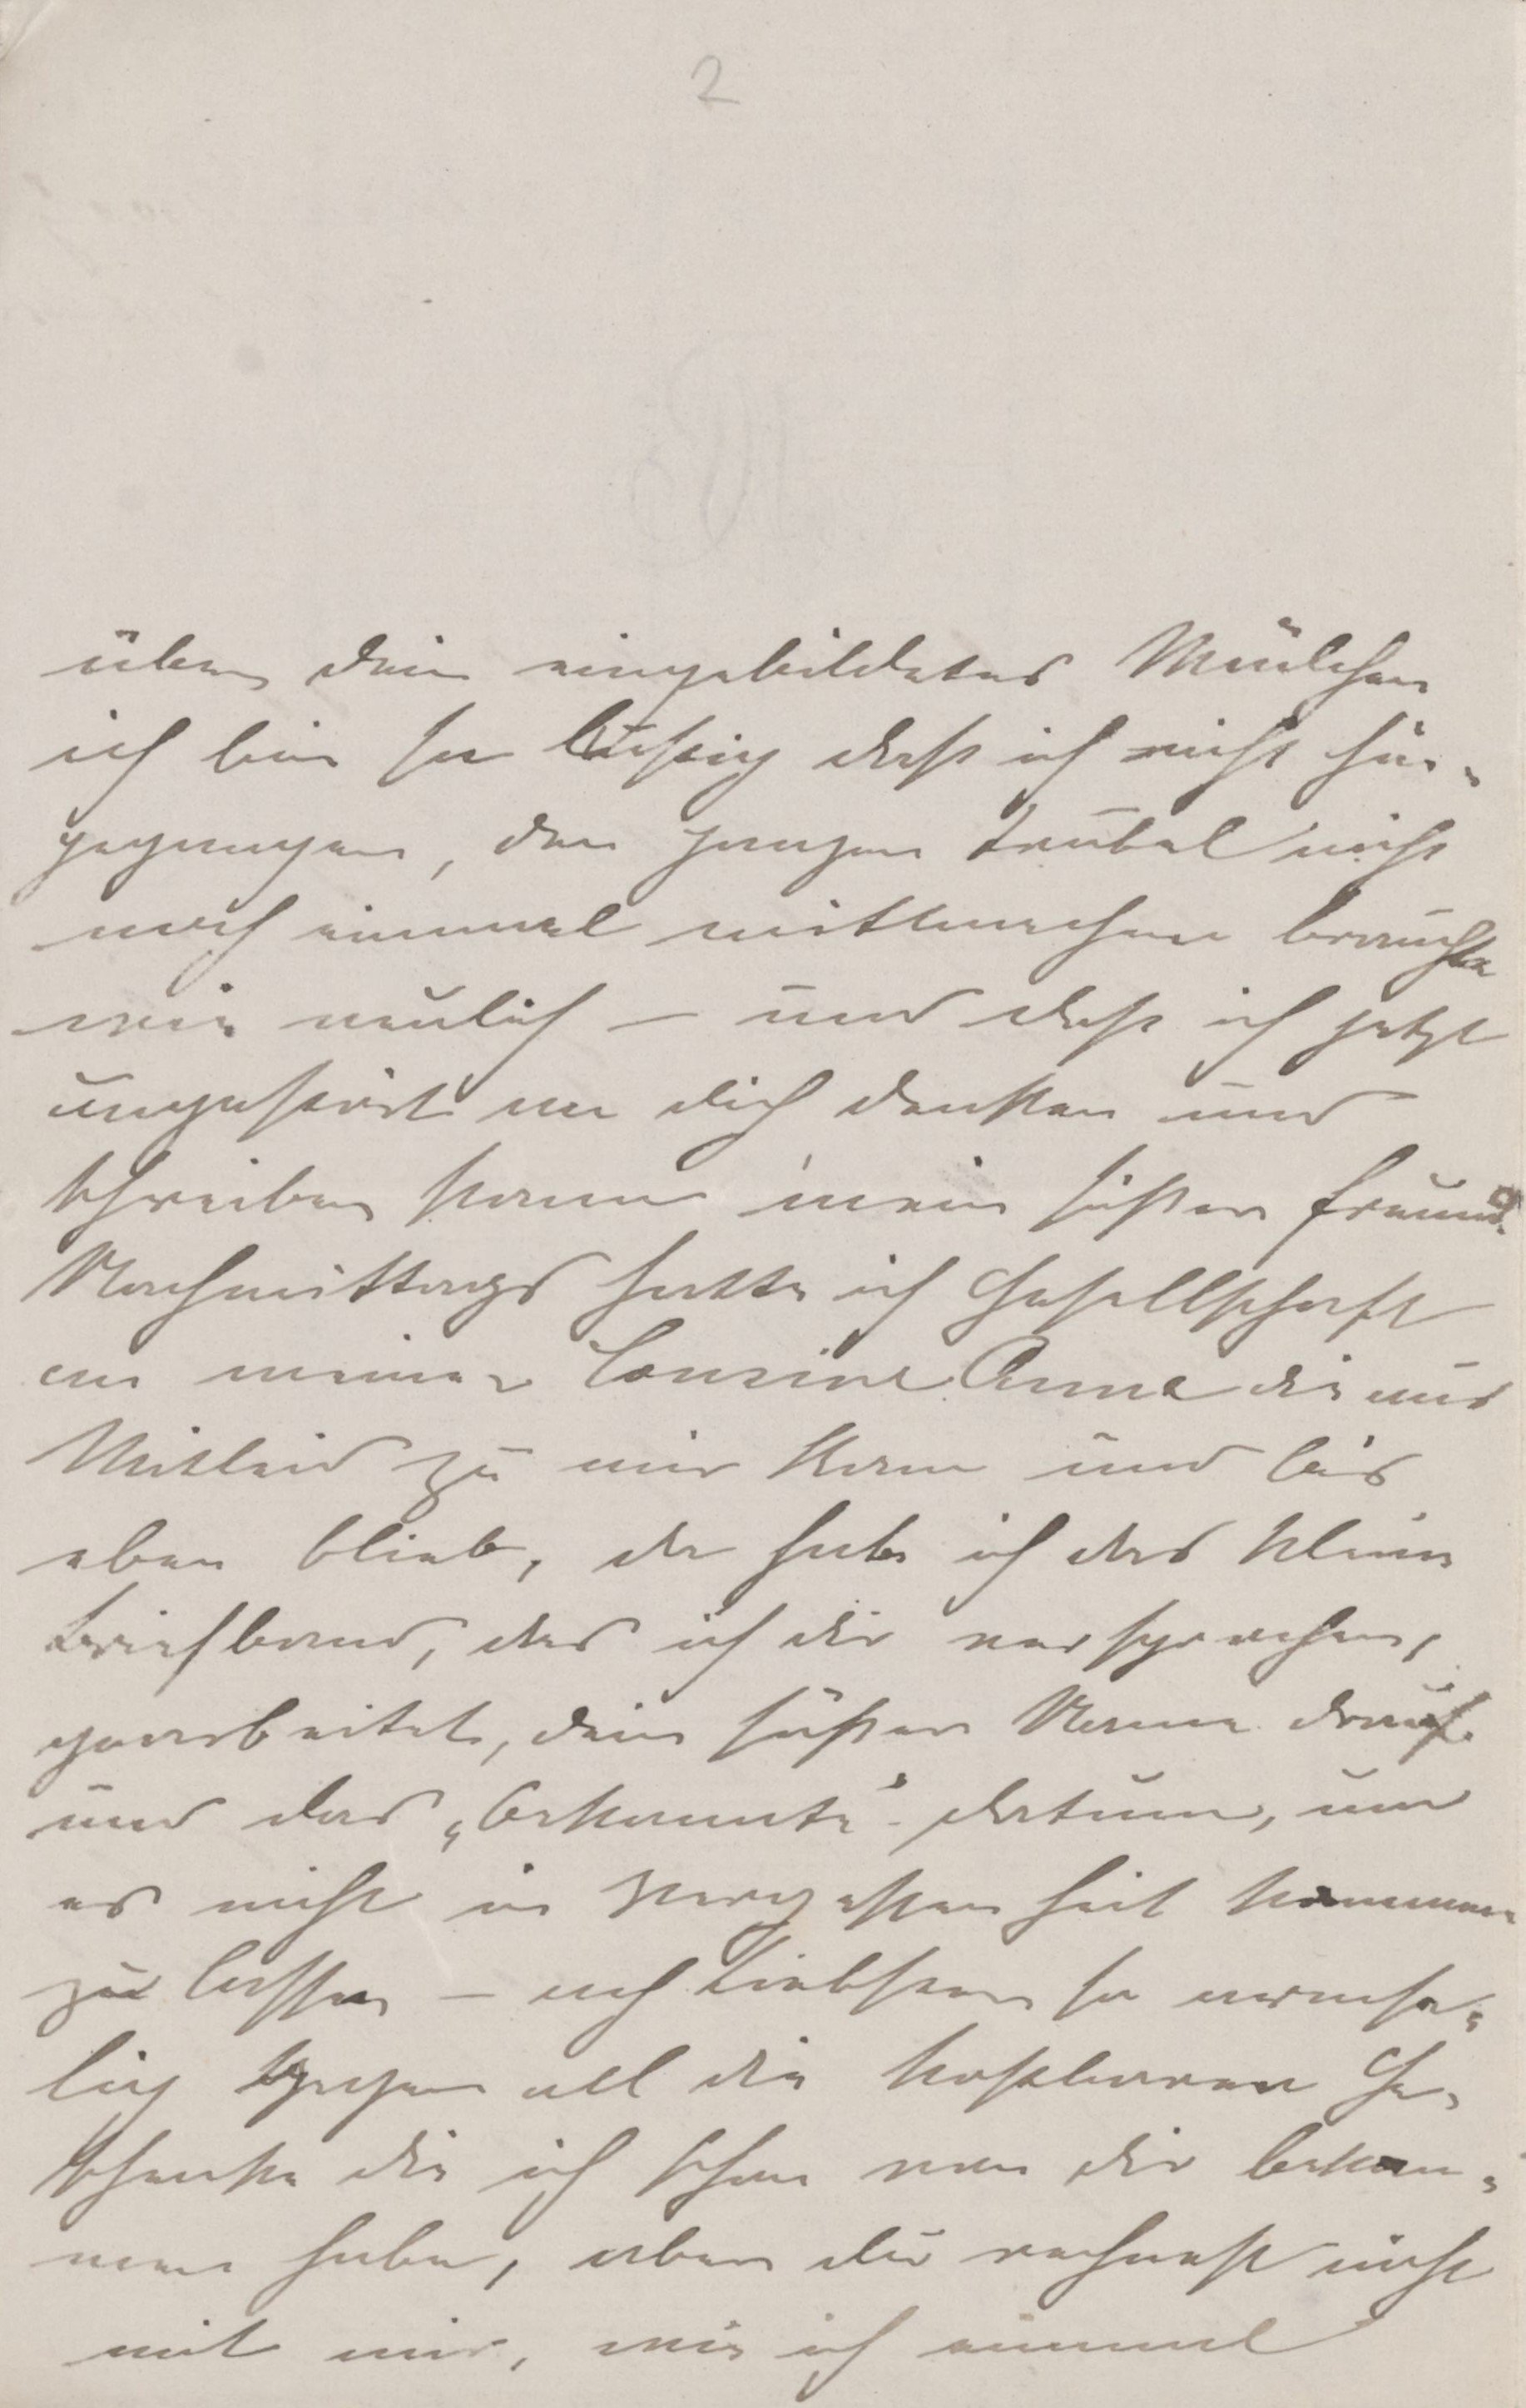 2
über dein eingebildetes Mäulchen
ich bin so lustig daß ich nicht hin-
gegangen, den ganzen Trubel nicht
noch einmal mitmachen brauchte
wie neulich – und daß ich jetzt
ungestört an dich denken und
schreiben kann mein süßer Freund.
Nachmittags hatte ich Gesellschaft
an meiner Cousine Anna die aus
Mitleid zu mir kam und bis
eben blieb, da habe ich das kleine
Briefband, das ich dir versprochen,
gearbeitet, dein süßer Name drauf
und das „bekannte" Datum, um
es nicht in Vergessenheit kommen
zu lassen – ach Liebster so armse-
lig gegen all die kostbaren Ge-
schenke die ich schon von dir bekom-
men habe, aber du rechnest nicht
mit mir, wie ich einmal